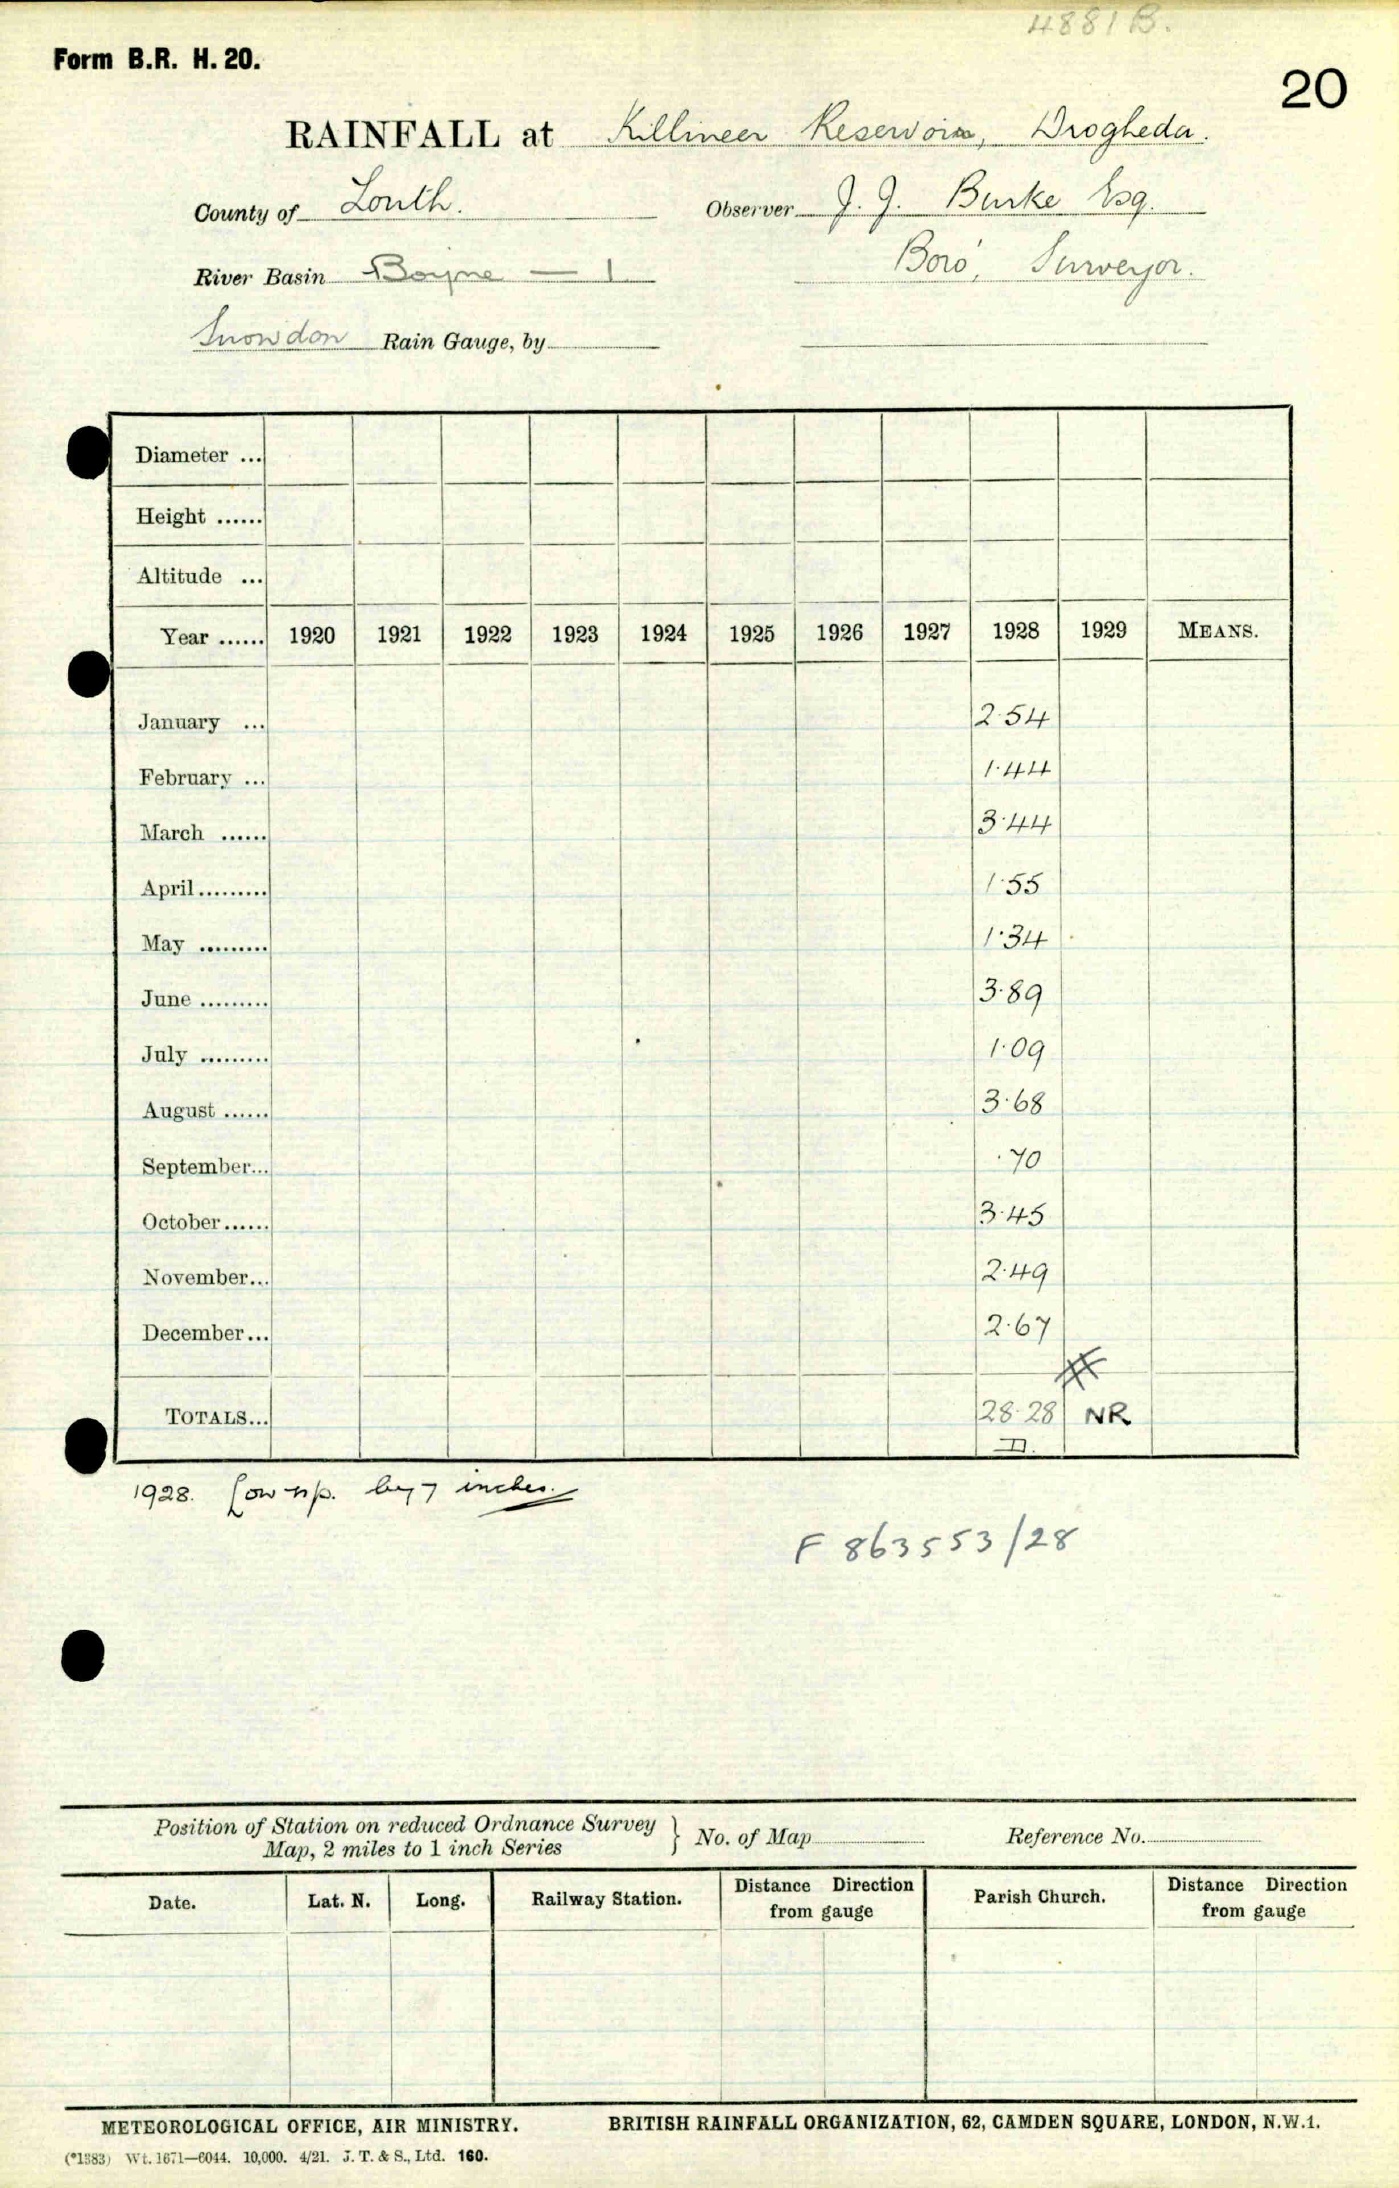 4881 B.
Form B.R. H. 20.
20
RAINFALL at Killineer Reservoir, Drogheda.
County of Louth. Observer J. J. Burke Esq.
River Basin Boyne — 1 Boro', Surveyor.
Snowdon Rain Gauge, by
Diameter ...
Height ......
Altitude ...
Year ...... 1920 1921 1922 1923 1924 1925 1926 1927 1928 1929 MEANS.
January ... 2.54
February ... 1.44
March ...... 3.44
April......... 1.55
May ......... 1.34
June ......... 3.89
July ......... 1.09
August ...... 3.68
September... .70
October...... 3.45
November... 2.49
December... 2.67
TOTALS... 28.28 NR
D.
1928. by 7 inches.
F 863553/28
Position of Station on reduced Ordnance Survey
Map, 2 miles to 1 inch Series } No. of Map Reference No.
Date. Lat. N. Long. Railway Station. Distance Direction from gauge Parish Church. Distance Direction from gauge
METEOROLOGICAL OFFICE, AIR MINISTRY. BRITISH RAINFALL ORGANIZATION, 62, CAMDEN SQUARE, LONDON, N.W.1.
(*1383) Wt. 1671—6044. 10,000. 4/21. J. T. & S., Ltd. 160.